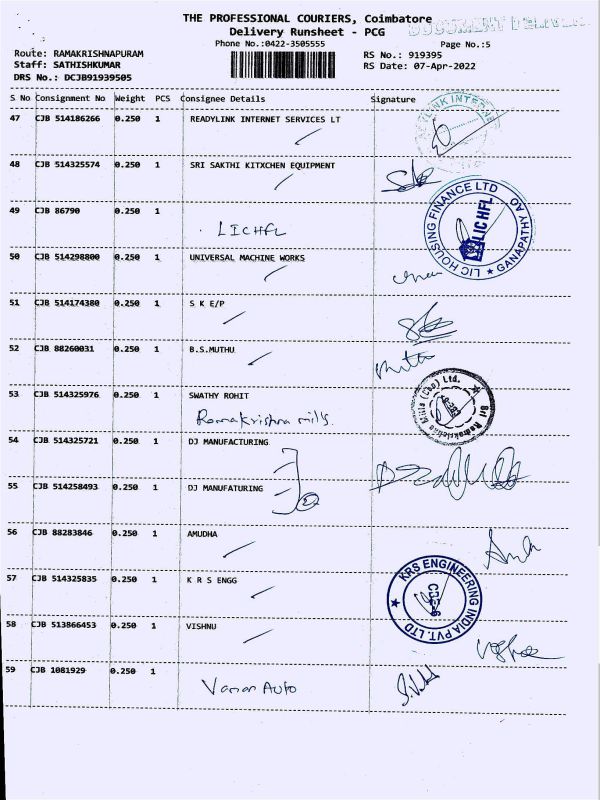 THE PROFESSIONAL COURIERS, Coimbatore
DOCUMENT DELIVER
Delivery Runsheet - PCG
Phone No.:0422-3505555
Page No.:5
Route: RAMAKRISHNAPURAM
RS No.: 919395
Staff: SATHISHKUMAR
RS Date: 07-Apr-2022
DRS No.: DCJB91939505
S No Consignment No Weight PCS Consignee Details Signature
47 CJB 514186266 0.250 1 READYLINK INTERNET SERVICES LT
48 CJB 514325574 0.250 1 SRI SAKTHI KITXCHEN EQUIPMENT
49 CJB 86790 0.250 1
LICHFL
LIC HOUSING FINANCE LTD
LICHFL
GANAPATHY AO
50 CJB 514298800 0.250 1 UNIVERSAL MACHINE WORKS
51 CJB 514174380 0.250 1 S K E/P
52 CJB 88260031 0.250 1 B.S.MUTHU
53 CJB 514325976 0.250 1 SWATHY ROHIT
Ramakrishna mills.
54 CJB 514325721 0.250 1 DJ MANUFACTURING
55 CJB 514258493 0.250 1 DJ MANUFATURING
2
56 CJB 88283846 0.250 1 AMUDHA
57 CJB 514325835 0.250 1 K R S ENGG
KRS ENGINEERING INDIA PVT. LTD
CBE-6
58 CJB 513866453 0.250 1 VISHNU
59 CJB 1081929 0.250 1
Auto